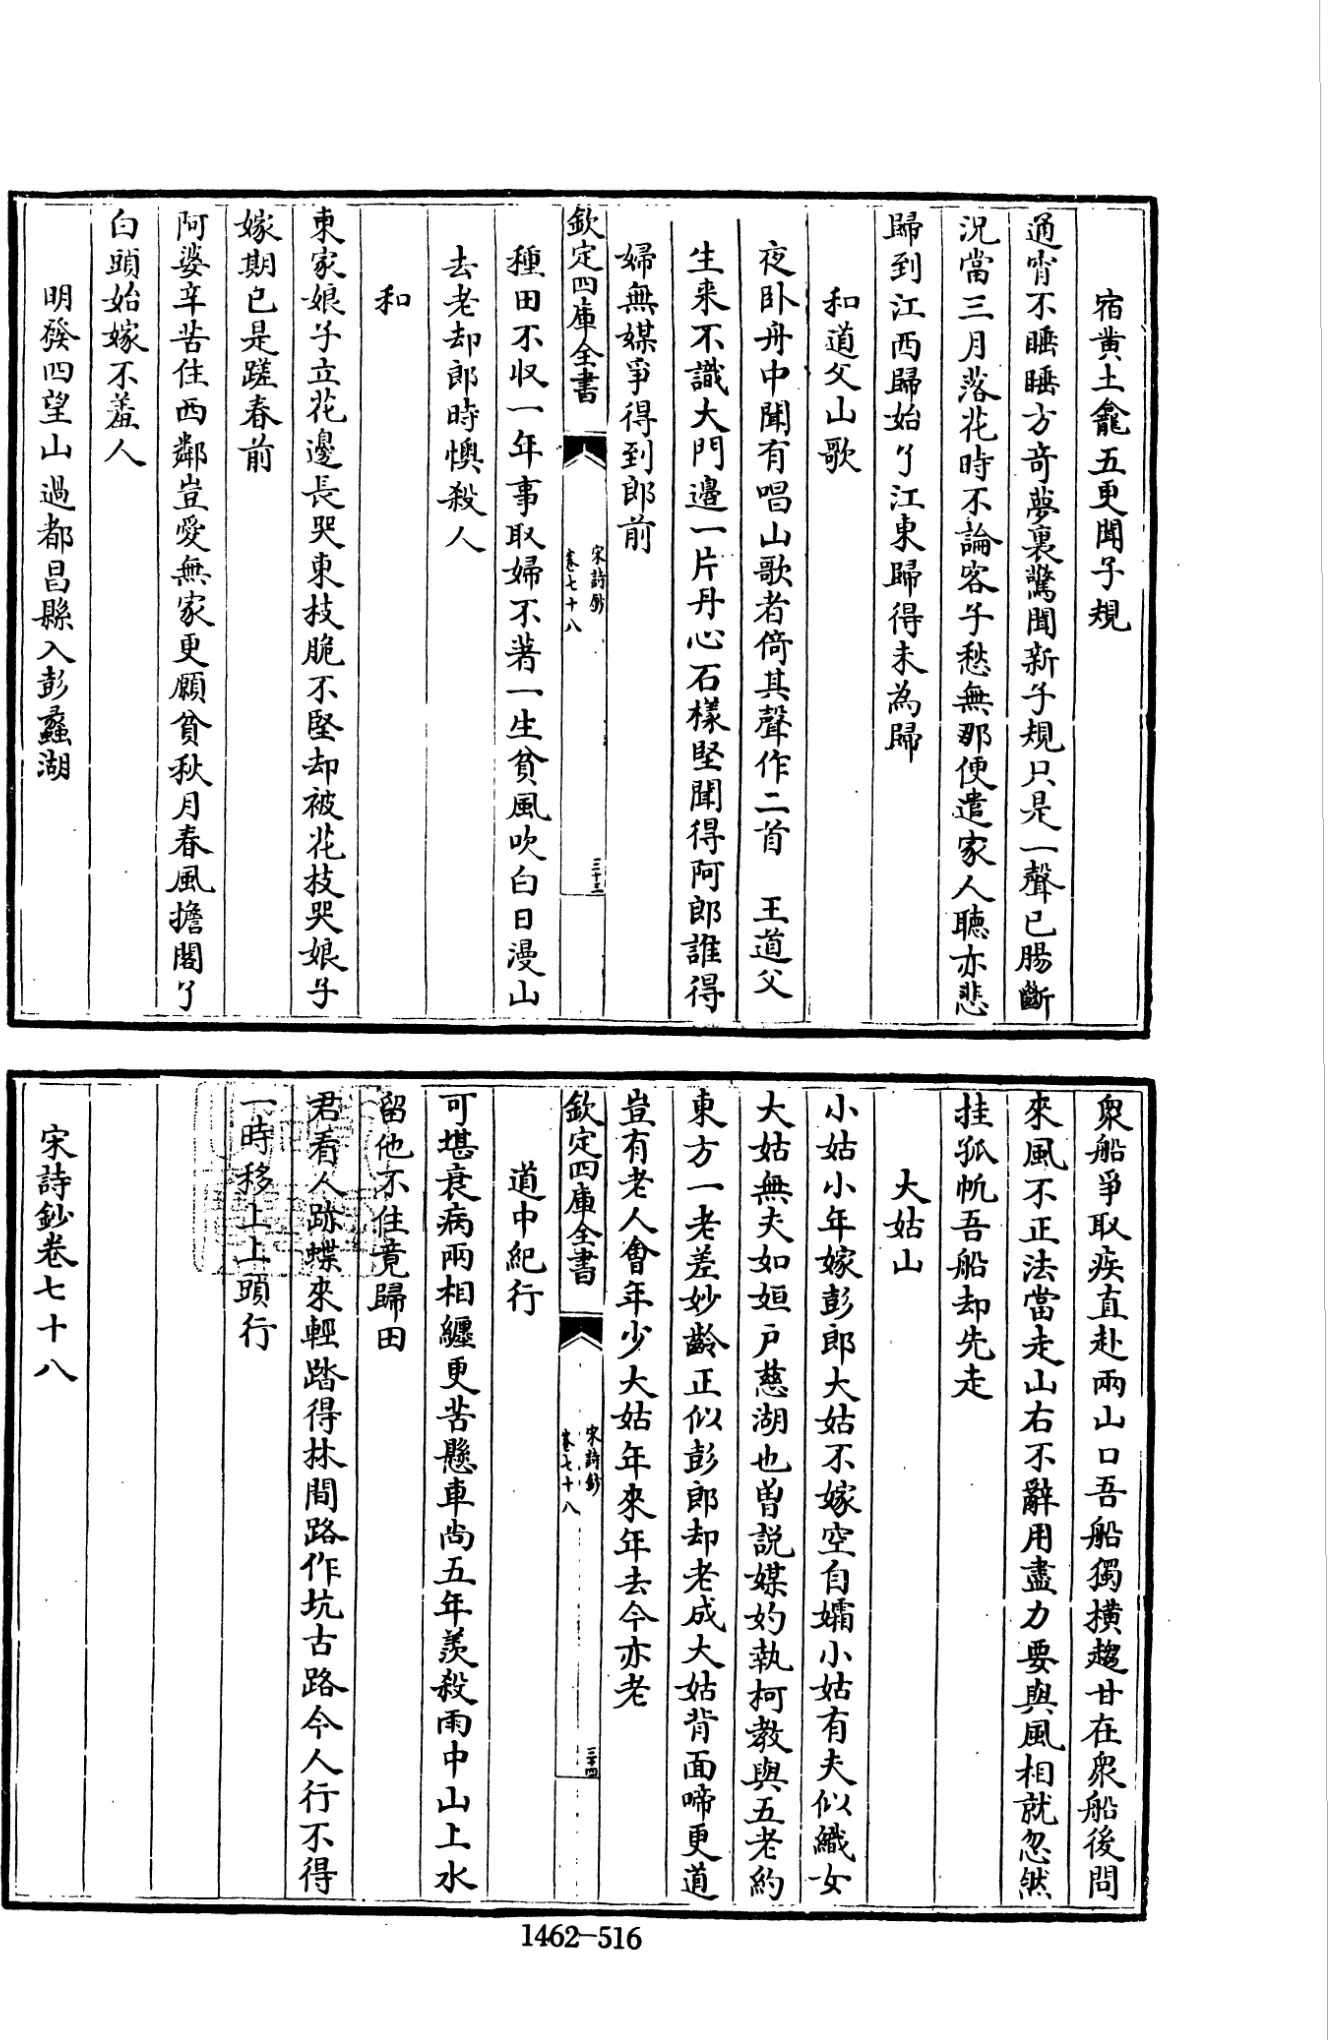 宿黄土龕五更聞子規
通宵不睡睡方奇夢裏驚聞新子規只是一聲已腸斷
況當三月落花時不論客子愁無那便遣家人聽亦悲
歸到江西歸始了江東歸得未為歸
和道父山歌
夜卧舟中聞有唱山歌者倚其聲作二首 王道父
生来不識大門邊一片丹心石樣堅聞得阿郎誰得
婦無媒爭得到郎前
欽定四庫全書
宋詩鈔
卷七十八
三十三
種田不收一年事取婦不著一生貧風吹白日漫山
去老却郎時懊殺人
和
東家娘子立花邊長哭東枝脆不堅却被花枝哭娘子
嫁期已是蹉春前
阿婆辛苦住西鄰豈愛無家更願貧秋月春風擔閣了
白頭始嫁不羞人
明發四望山過都昌縣入彭蠡湖
衆船爭取疾直赴兩山口吾船獨横趨甘在衆船後問
來風不正法當走山右不辭用盡力要與風相就忽然
挂孤帆吾船却先走
大姑山
小姑小年嫁彭郎大姑不嫁空自孀小姑有夫似織女
大姑無夫如姮戸慈湖也曽説媒妁執柯教與五老約
東方一老差妙齡正似彭郎却老成大姑背面啼更道
豈有老人㑹年少大姑年來年去今亦老
欽定四庫全書
宋詩鈔
卷七十八
三十四
道中紀行
可堪衰病兩相纒更苦懸車尚五年羡殺雨中山上水
留他不住竟歸田
君看人跡蝶來輕踏得林間路作坑古路今人行不得
一時移上上頭行
宋詩鈔卷七十八
1462-516